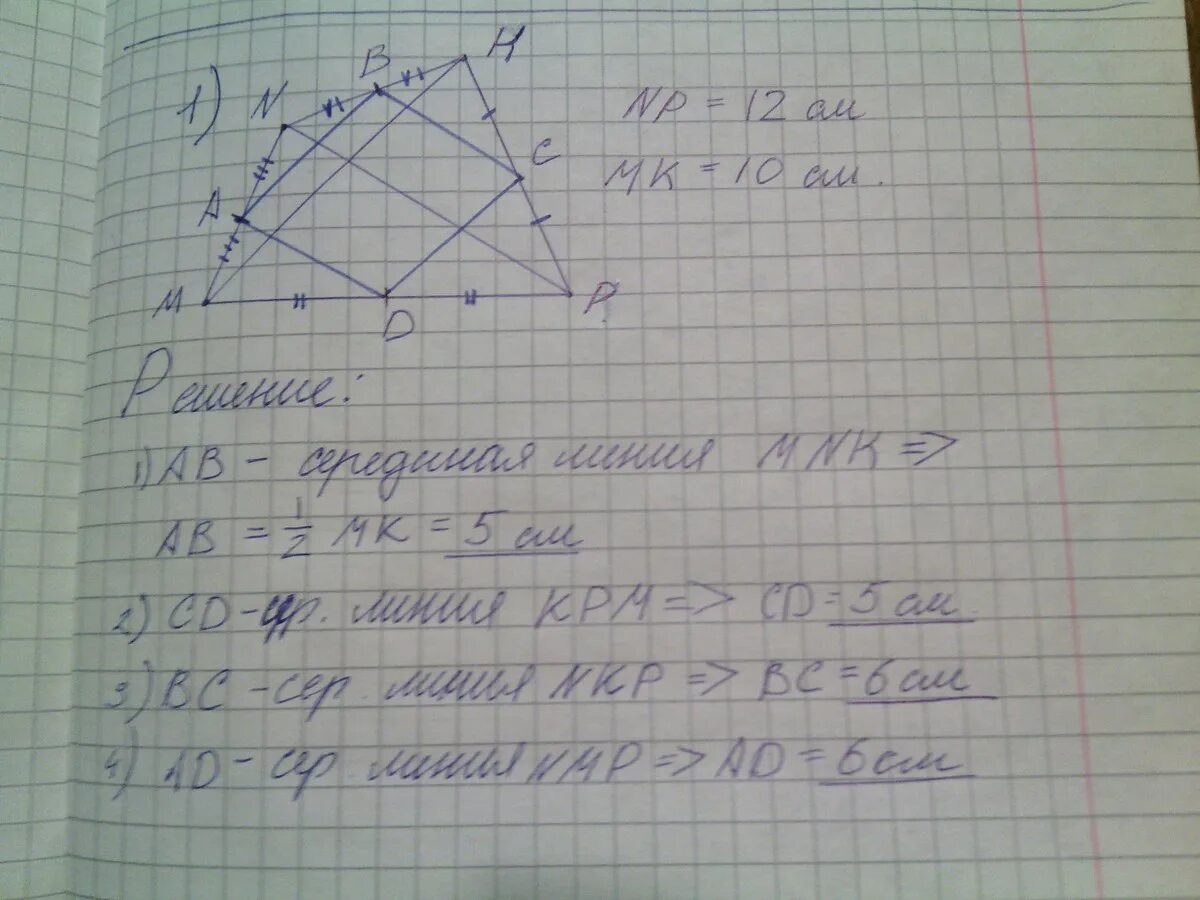 1)
N B К
A C
M D P
NP = 12 см
MK = 10 см.
Решение:
1) AB - серединая линия MNK =>
AB = 1/2 MK = 5 см
2) CD - ср. линия KPM => CD = 5 см.
3) BC - сер. линия NKP => BC = 6 см
4) AD - сер. линия NMP => AD = 6 см